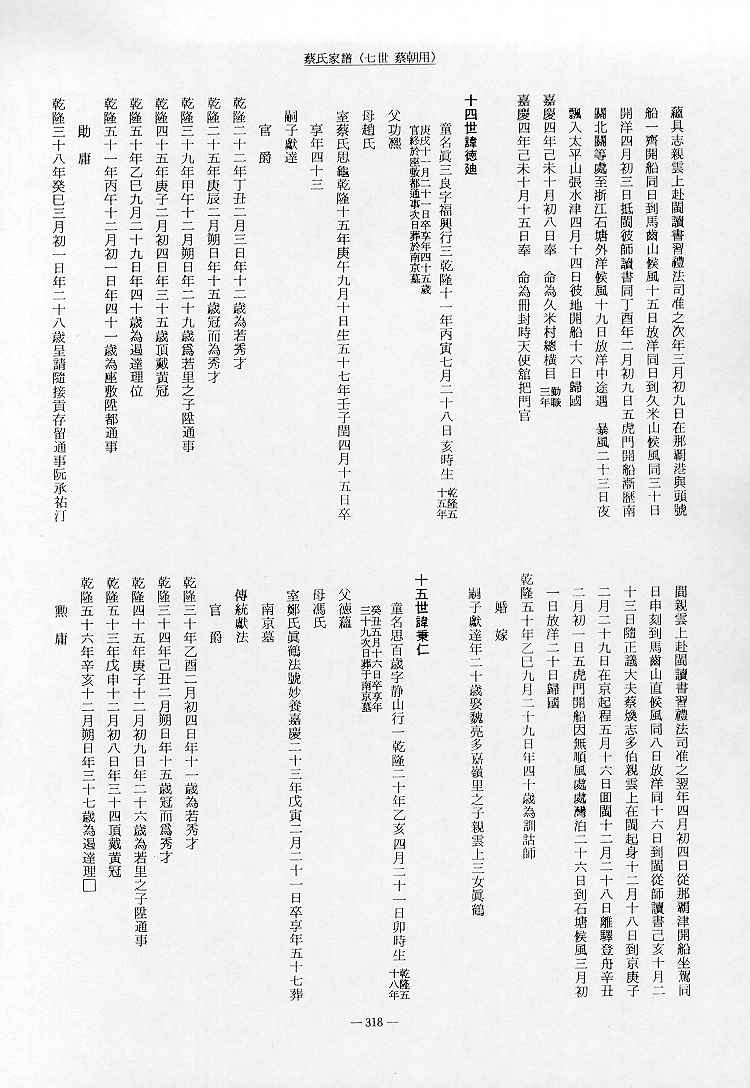 蔡氏家譜（七世 蔡朝用）
蘊具志親雲上赴閩讀書習禮法司准之次年三月初九日在那覇港與頭號
船一齊開船同日到馬齒山候風十五日放洋同日到久米山候風同三十日
開洋四月初三日抵閩彼師讀書同丁酉年二月初九日五虎門開船漸歷南
關北關等處至浙江石塘外洋候風十九日放洋中途遇　暴風二十三日夜
飄入太平山張水津四月十四日彼地開船十六日歸國
嘉慶四年己未十月初八日奉　命為久米村總橫目勤職三年
嘉慶四年己未十月十五日奉　命為冊封時天使舘把門官
十四世諱徳廸
童名眞三良字福興行三乾隆十一年丙寅七月二十八日亥時生乾隆五十五年
庚戌十一月二十一日卒享年四十五歲
官終於座敷都通事次日葬於南京墓
父功熙
母趙氏
室蔡氏思龜乾隆十五年庚午九月十日生五十七年壬子閏四月十五日卒
享年四十三
嗣子獻達
官　爵
乾隆二十二年丁丑二月三日年十二歲為若秀才
乾隆二十五年庚辰二月朔日年十五歲冠而為秀才
乾隆三十九年甲午十二月朔日年二十九歲爲若里之子陞通事
乾隆四十五年庚子二月初四日年三十五歲頂戴黄冠
乾隆五十年乙巳九月二十九日年四十歲為遏達理位
乾隆五十一年丙午十二月初一日年四十一歲為座敷陞都通事
勛　庸
乾隆三十八年癸巳三月初一日年二十八歲呈請隨接貢存留通事阮承祐汀
間親雲上赴閩讀書習禮法司准之翌年四月初四日從那覇津開船坐駕同
日申刻到馬齒山直候風同八日放洋同十六日到閩從師讀書己亥十月二
十三日隨正議大夫蔡煥志多伯親雲上在閩起身十二月十八日到京庚子
二月二十九日在京起程五月十六日囬閩十二月二十八日離驛登舟辛丑
二月初一日五虎門開船因無順風處處灣泊二十六日到石塘候風三月初
一日放洋二十日歸國
乾隆五十年乙巳九月二十九日年四十歲為訓詁師
婚　嫁
嗣子獻達年二十歲娶魏亮多嘉嶺里之子親雲上三女眞鶴
十五世諱秉仁
童名思百歲字静山行一乾隆二十年乙亥四月二十一日卯時生乾隆五十八年
癸丑五月十六日卒享年
三十九次日葬于南京墓
父徳蘊
母馮氏
室鄭氏眞鶴法號妙養嘉慶二十三年戊寅二月二十一日卒享年五十七葬
南京墓
傳統獻法
官　爵
乾隆三十年乙酉二月初四日年十一歲為若秀才
乾隆三十四年己丑二月朔日年十五歲冠而爲秀才
乾隆四十五年庚子十二月初九日年二十六歲為若里之子陞通事
乾隆五十三年戊申十二月初八日年三十四頂戴黄冠
乾隆五十六年辛亥十二月朔日年三十七歲為遏達理□
勲　庸
— 318 —